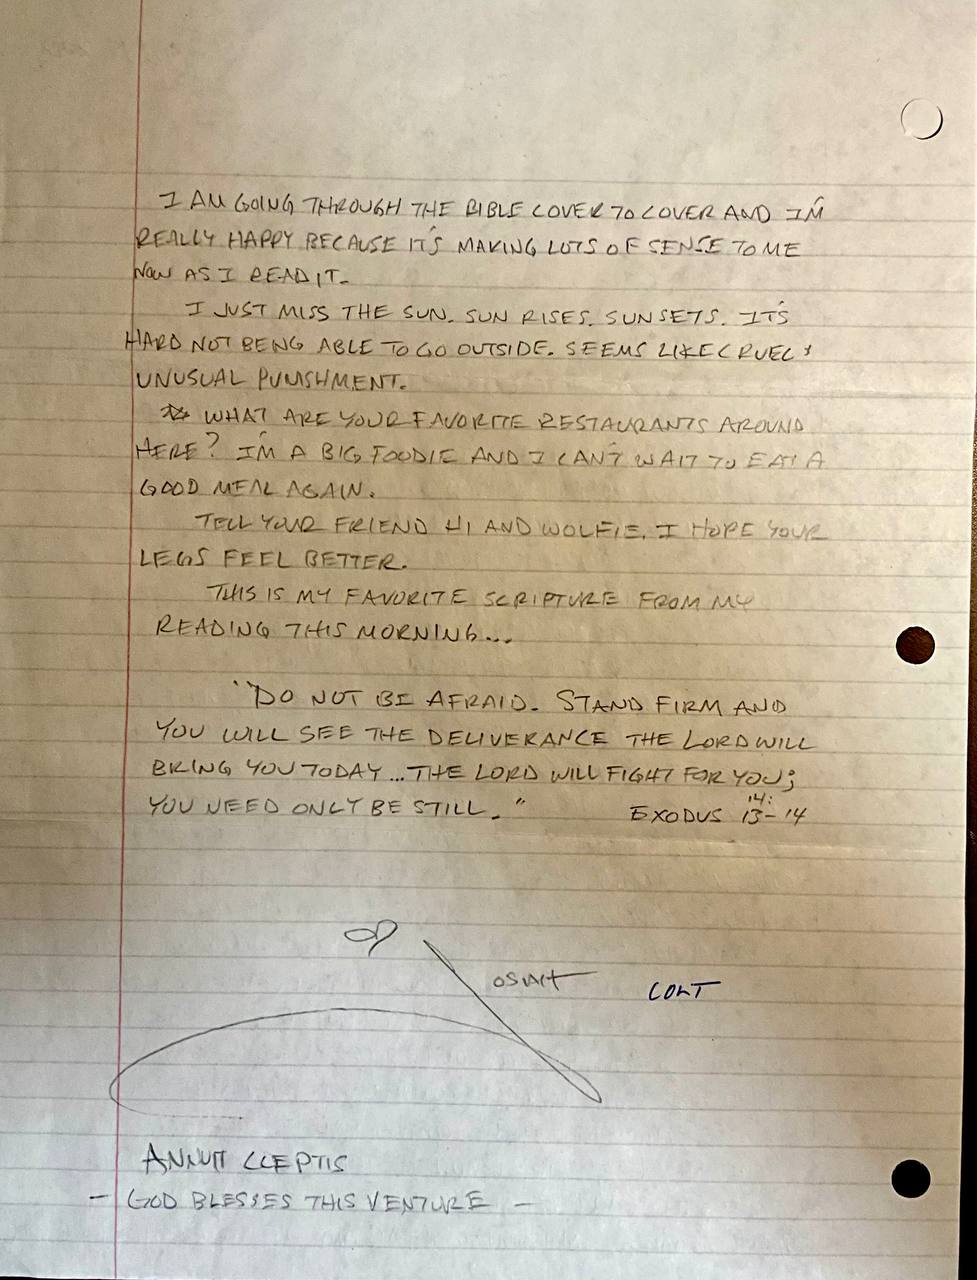 I AM GOING THROUGH THE BIBLE COVER TO COVER AND I'M
REALLY HAPPY BECAUSE IT'S MAKING LOTS OF SENSE TO ME
NOW AS I READ IT.
I JUST MISS THE SUN. SUN RISES. SUNSETS. IT'S
HARD NOT BEING ABLE TO GO OUTSIDE. SEEMS LIKE CRUEL &
UNUSUAL PUNISHMENT.
☆ WHAT ARE YOUR FAVORITE RESTAURANTS AROUND
HERE? I'M A BIG FOODIE AND I CAN'T WAIT TO EAT A
GOOD MEAL AGAIN.
TELL YOUR FRIEND HI AND WOLFIE. I HOPE YOUR
LEGS FEEL BETTER.
THIS IS MY FAVORITE SCRIPTURE FROM MY
READING THIS MORNING...
"DO NOT BE AFRAID. STAND FIRM AND
YOU WILL SEE THE DELIVERANCE THE LORD WILL
BRING YOU TODAY...THE LORD WILL FIGHT FOR YOU;
YOU NEED ONLY BE STILL." EXODUS 14:13-14
COLT
ANNUIT CCEPTIS
- GOD BLESSES THIS VENTURE -